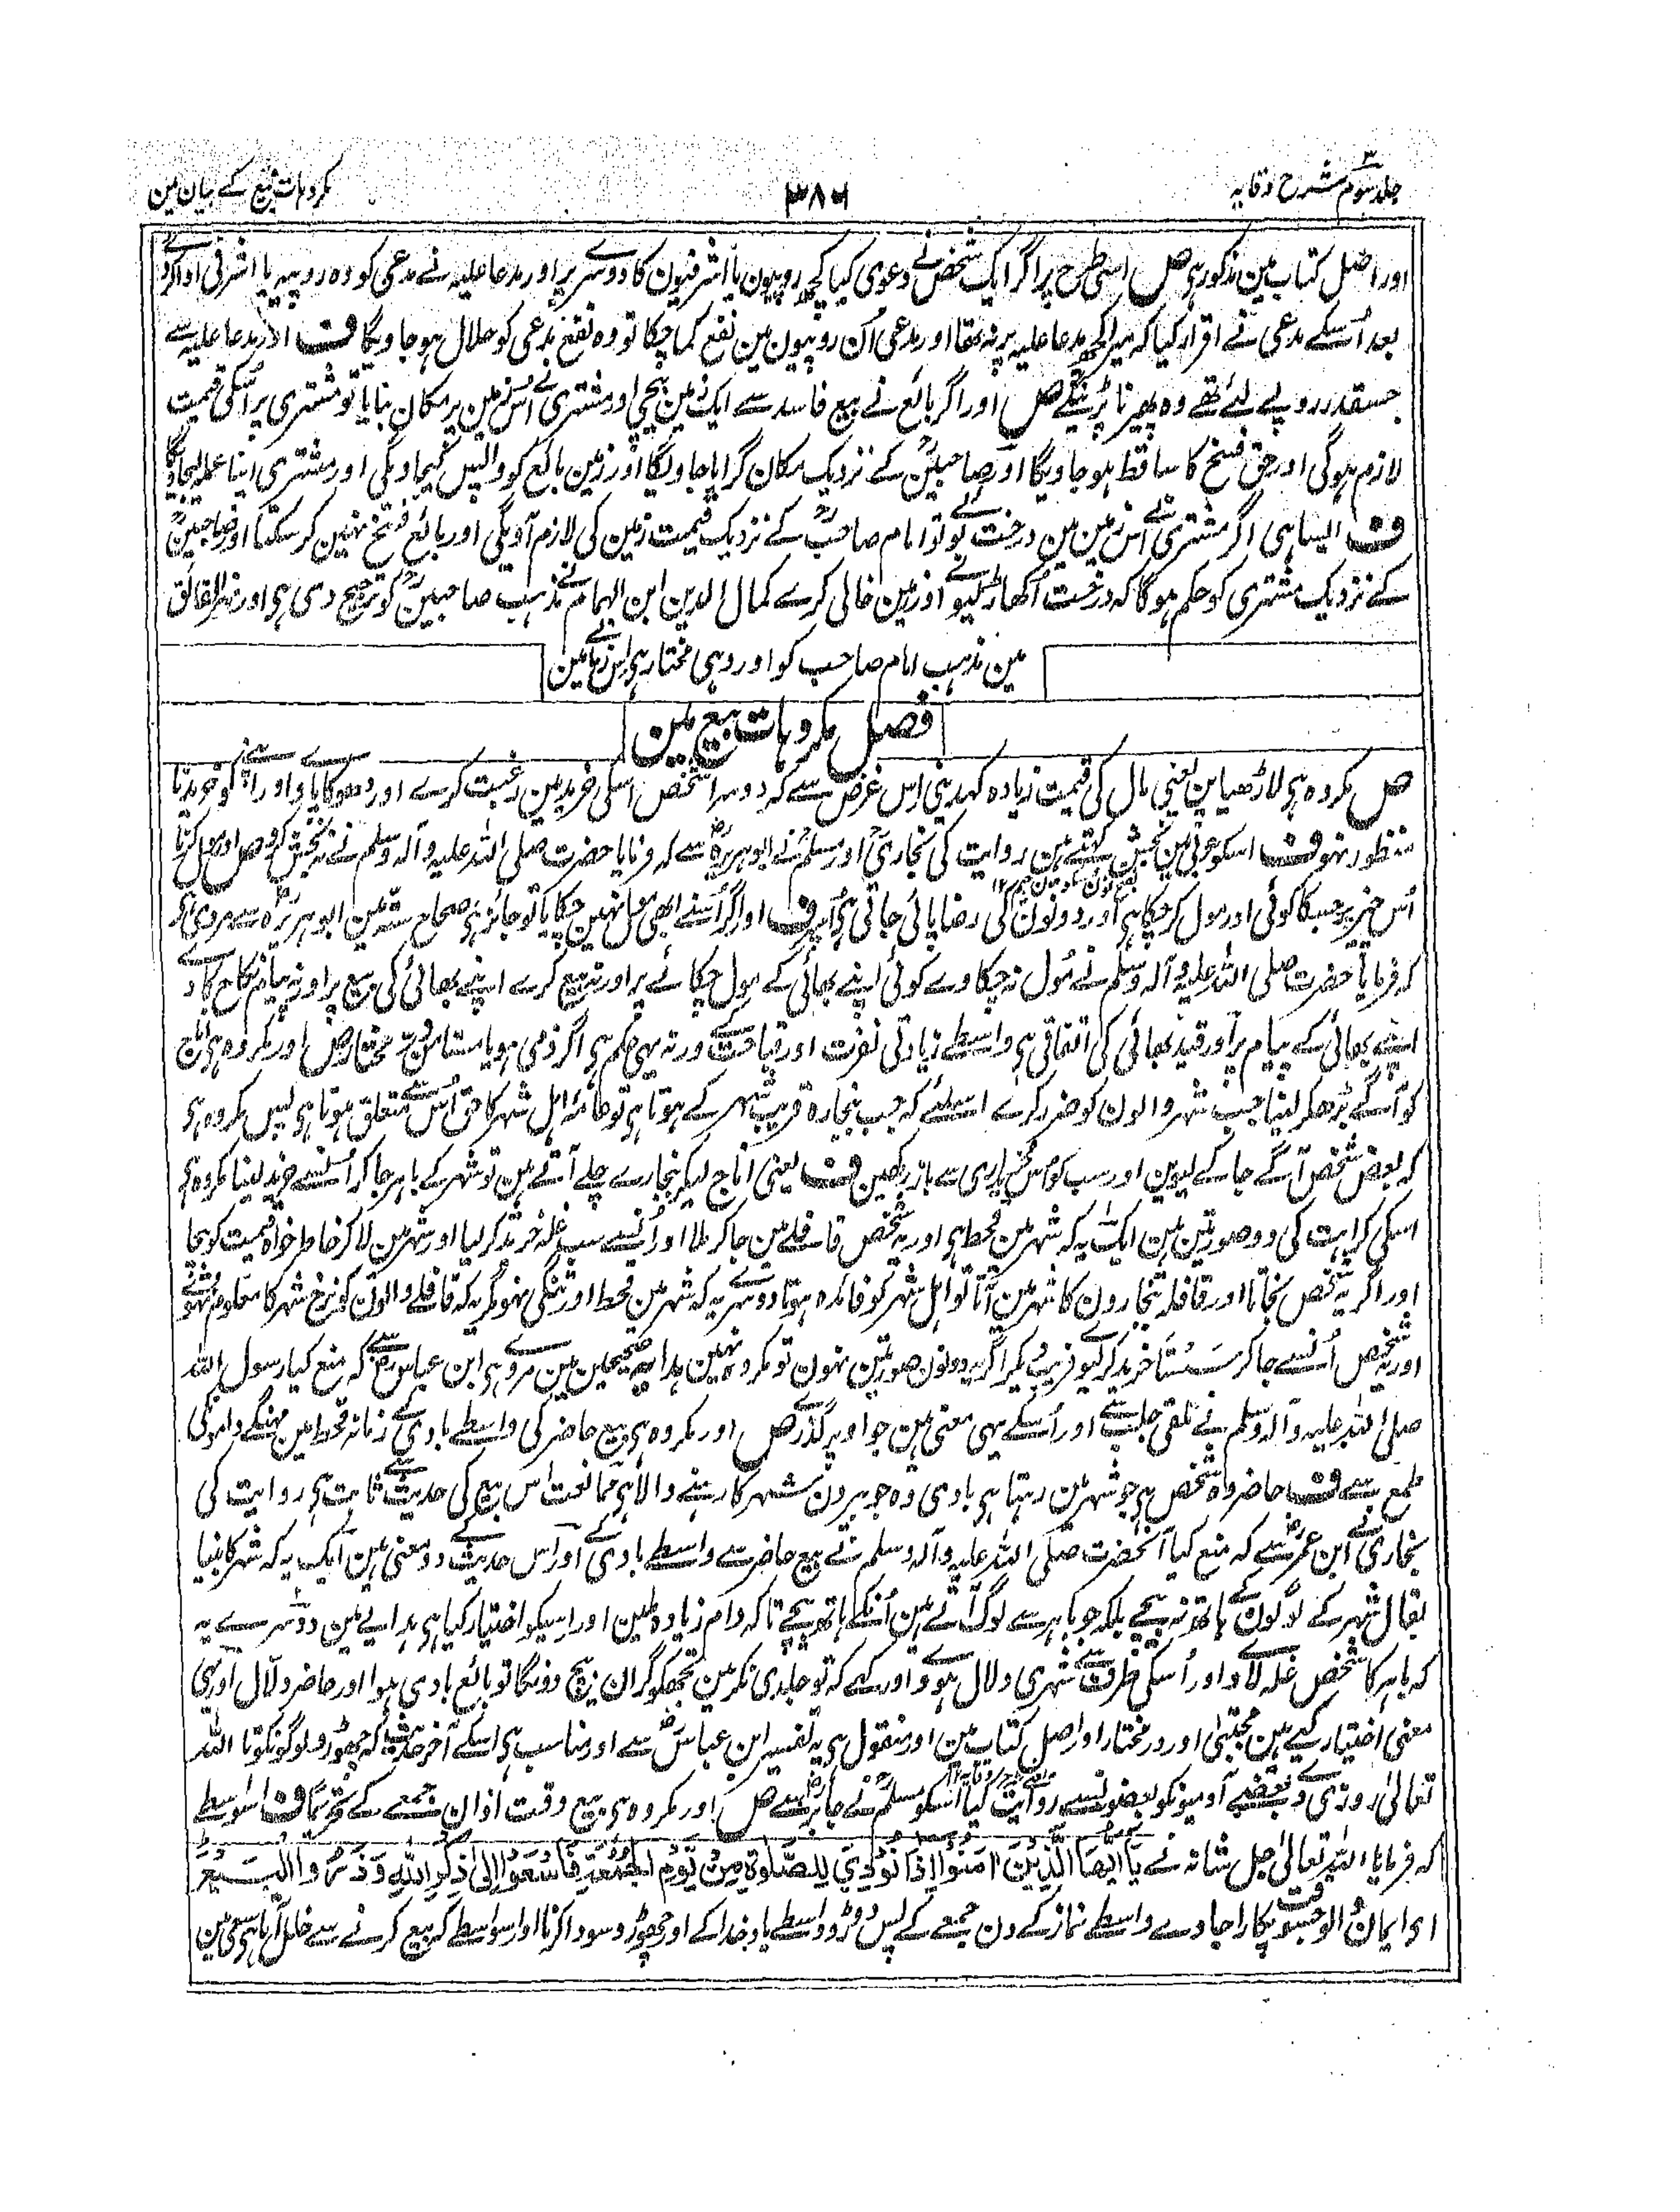 جلد سوم شرح وقایہ
۳۸۶
مکروہات بیع کے بیان مین
اور اصل کتاب مین مذکور ہی ص اسی طرح پر اگر ایک شخص نے دعوی کیا کچھ روپیون یا اشرفیون کا دوسرے پر اور مدعا علیہ نے مدعی کو وہ روپیہ یا اشرفی ادا کردے
بعد اُسکے مدعی نے اقرار کیا کہ میرا کچھ مدعا علیہ پر نہ تھا اور مدعی اُن روپیون مین نفع کما چکا تو وہ نفع مدعی کو حلال ہو جاویگا ف الا مدعا علیہ سے
جسقدر روپے لئے تھے وہ پھیرنا پڑینگے ص اور اگر بائع نے بیع فاسد سے ایک زمین بیچی اور مشتری نے اُس زمین پر مکان بنایا تو مشتری پر اُسکی قیمت
لازم ہوگی اور حق فسخ کا ساقط ہو جاویگا اور صاحبین کے نزدیک مکان گرایا جاویگا اور زمین بائع کو واپس کیجاویگی اور مشتری اپنا عملہ لیجاویگا
ف ایسا ہی اگر مشتری نے اُس زمین مین درخت بوئے تو امام صاحب کے نزدیک قیمت زمین کی لازم آویگی اور بائع فسخ نہین کر سکتا اور صاحبین
کے نزدیک مشتری کو حکم ہوگا کہ درخت اُکھاڑ لیوے اور زمین خالی کرے کمال الدین ابن الہمام نے مذہب صاحبین کو ترجیح دی ہی اور نہر الفائق
مین مذہب امام صاحب کو اور وہی مختار ہی اس زمانے مین
فصل مکروہات بیع مین
ص مکروہ ہی لاڑھیا پن یعنی مال کی قیمت زیادہ کہدینی اس غرض سے کہ دوسرا شخص اسکی خرید مین رغبت کرے اور دھوکا پاوے اور اپنے کو خریدنا
منظور نہو ف اسکو عربی مین نجش کہتے ہین روایت کی بخاری اور مسلم نے ابو ہریرہ سے کہ فرمایا حضرت صلی اللہ علیہ وآلہ وسلم نے نہ نجش کرو ص اور مول کرنا
اُس چیز پر جسکا کوئی اور مول کر چکا ہی اور دونون کی رضا پائی جاتی ہی اُسپر ف اور اگر اُسنے ابھی مول نہین چکایا تو جائز ہی صحاح ستہ مین ابو ہریرہ سے مروی ہی
کہ فرمایا حضرت صلی اللہ علیہ وآلہ وسلم نے مُول نہ چکاوے کوئی اپنے بھائی کے مول چکائے پر اور نہ بیع کرے اپنے بھائی کی بیع پر اور نہ پیام نکاح کا دے
اپنے بھائی کے پیام پر اور قید بھائی کی اتفاقی ہی واسطے زیادتی نفرت اور قباحت کے ورنہ یہی حکم ہی اگر ذمی ہو یا مستامن در مختار ص اور مکروہ ہی اناج
کو آگے بڑھکر لینا جب شہر والون کو ضرر کرے اسلئے کہ جب بنجارہ قریب شہر کے ہوتا ہی تو عامہ اہل شہر کا حق اُس سے متعلق ہوتا ہی پس مکروہ ہی
کہ بعض شخص آگے جا کے لیوین اور سب کو اس خریداری سے باز رکھین ف یعنی اناج لیکر بنجارے چلے آتے ہین تو شہر کے باہر جاکر اُنسے خرید لینا مکروہ ہی
اسکی کراہت کی دو صورتین ہین ایک یہ کہ شہر مین قحط ہی اور یہ شخص قافلے مین جا کر ملا اور اُنسے سب غلہ خرید کر لیا اور شہر مین لا کر خاطر خواہ قیمت کو بیچا
اور اگر یہ شخص نجاتا اور قافلہ بنجارون کا شہر مین آتا تو اہل شہر کو فائدہ ہوتا دوسرے یہ کہ شہر مین قحط اور تنگی نہو مگر یہ کہ قافلے والون کو نرخ شہر کا معلوم نہو
اور یہ شخص اُنسے جا کر سَستا خرید کر لیوے فریب دیکر اگر یہ دونون صورتین نہون تو مکروہ نہین ہدایہ صحیحین مین مروی ہی ابن عباس سے کہ منع کیا رسول اللہ
صلی اللہ علیہ وآلہ وسلم نے تلقی جلب سے اور اُسکے یہی معنی ہین جو اوپر گذرے ص اور مکروہ ہی بیع حاضر کی واسطے بادی کے زمانہ قحط مین مہنگے دامون کی
طمع سے ف حاضر وہ شخص ہی جو شہر مین رہتا ہی بادی وہ جو بیرون شہر کا رہنے والا ہی ممانعت اس بیع کی حدیث سے ثابت ہی روایت کی
بخاری نے ابن عمر سے کہ منع کیا آنحضرت صلی اللہ علیہ وآلہ وسلم نے بیع حاضر سے واسطے بادی کے اور اس حدیث کے دو معنی ہین ایک یہ کہ شہر کا بنیا
بقال شہر کے لوگون کے ہاتھ نہ بیچے بلکہ جو باہر سے لوگ آتے ہین اُنکے ہاتھ بیچے تاکہ دام زیادہ ملین اور اسیکو اختیار کیا ہی ہدایے مین دوسرے یہ
کہ باہر کا شخص غلہ لاوے اور اُسکی طرف سے شہری دلال ہووے اور کہے کہ تو جلدی نکر مین تجھکو گران بیچ دونگا تو بائع بادی ہوا اور حاضر دلال اور یہی
معنی اختیار کیے ہین مجتبیٰ اور در مختار اور اصل کتاب مین اور منقول ہی یہ تفسیر ابن عباس سے اور مناسب ہی اسکے آخر حدیث کہ چھوڑو لوگونکو تا اللہ
تعالیٰ روزی دے بعضے آدمیونکو بعضونسے روایت کیا اسکو مسلم نے جابر سے ص اور مکروہ ہی بیع وقت اذان جمعے کے تحریماً ف اسواسطے
کہ فرمایا اللہ تعالیٰ جل شانہ نے يَا أَيُّهَا الَّذِينَ آمَنُوا إِذَا نُودِيَ لِلصَّلٰوةِ مِنْ يَوْمِ الْجُمُعَةِ فَاسْعَوْا إِلَىٰ ذِكْرِ اللَّهِ وَذَرُوا الْبَيْعَ
ای ایمان والو جسوقت پکارا جاوے واسطے نماز کے دن جمعے کے پس دوڑو واسطے یاد خدا کے اور چھوڑو سودا کرنا اور اسواسطے کہ بیع کرنے سے خلل آتا ہی سعی مین